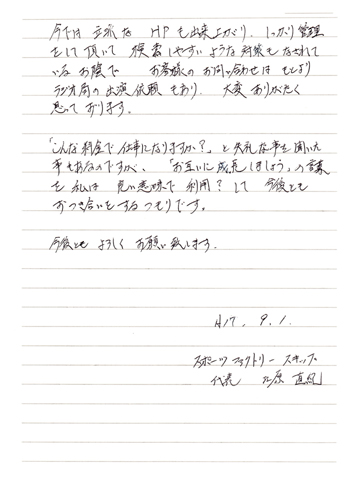 今では 立派な HPも出来上がり、しっかり管理
をして頂いて 検索しやすいような対策もなされて
いるお陰で お客様のお問い合わせは もとより
ラジオ局の出演依頼もあり、大変ありがたく
思っております。
「こんな料金で仕事になりますか?」と失礼な事を聞いた
事もあるのですが、「お互いに成長しましょう」の言葉
を 私は 良い意味で 利用?して 今後とも
おつき合いをするつもりです。
今後とも よろしく お願い致します。
H17. 9. 1.
スポーツファクトリー スキップ
代表 原 直